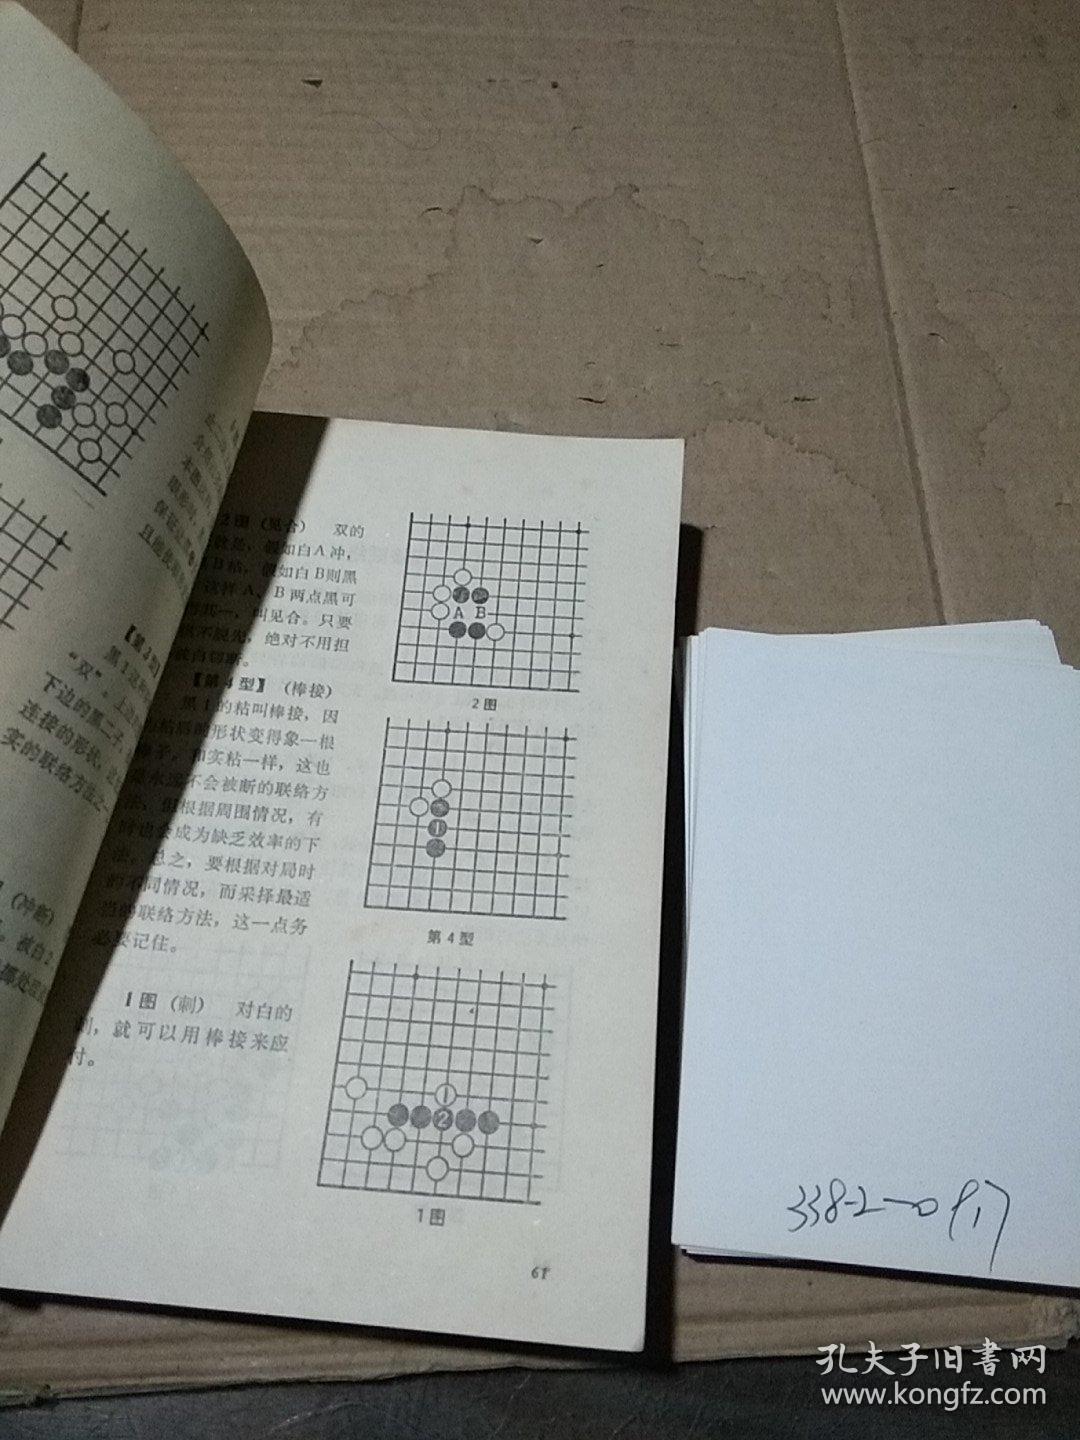 【第3型
“双”。上边
下边的黑二子，
连接的形状，
实的联络方法之一
（冲断）
。被白2
2图（见合） 双的
就是，假如白A冲，
B粘，假如白B则黑
这样A、B两点黑可
，叫见合。只要
不脱先，绝对不用担
被白切断。
A B
2图
【第4型】（棒接）
黑1的粘叫棒接，因
粘后的形状变得象一根
棒子，和实粘一样，这也
是永远不会被断的联络方
法，但根据周围情况，有
时也会成为缺乏效率的下
法。总之，要根据对局时
的不同情况，而采择最适
当的联络方法，这一点务
必要记住。
1
第4型
1图（刺） 对白的
刺，就可以用棒接来应
付。
1
2
1图
61
338-2-0917
孔夫子旧书网
www.kongfz.com